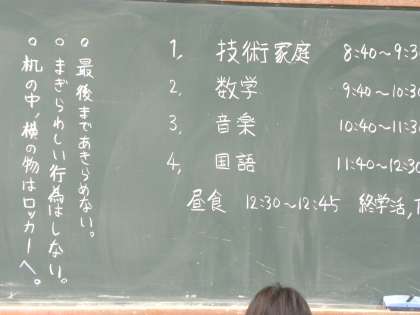 1, 技術家庭 8:40～9:3
2, 数学 9:40～10:30
3, 音楽 10:40～11:3
4, 国語 11:40～12:30
昼食 12:30～12:45 終学活,
○最後まであきらめない。
○まぎらわしい行為はしない。
○机の中、横の物はロッカーへ。